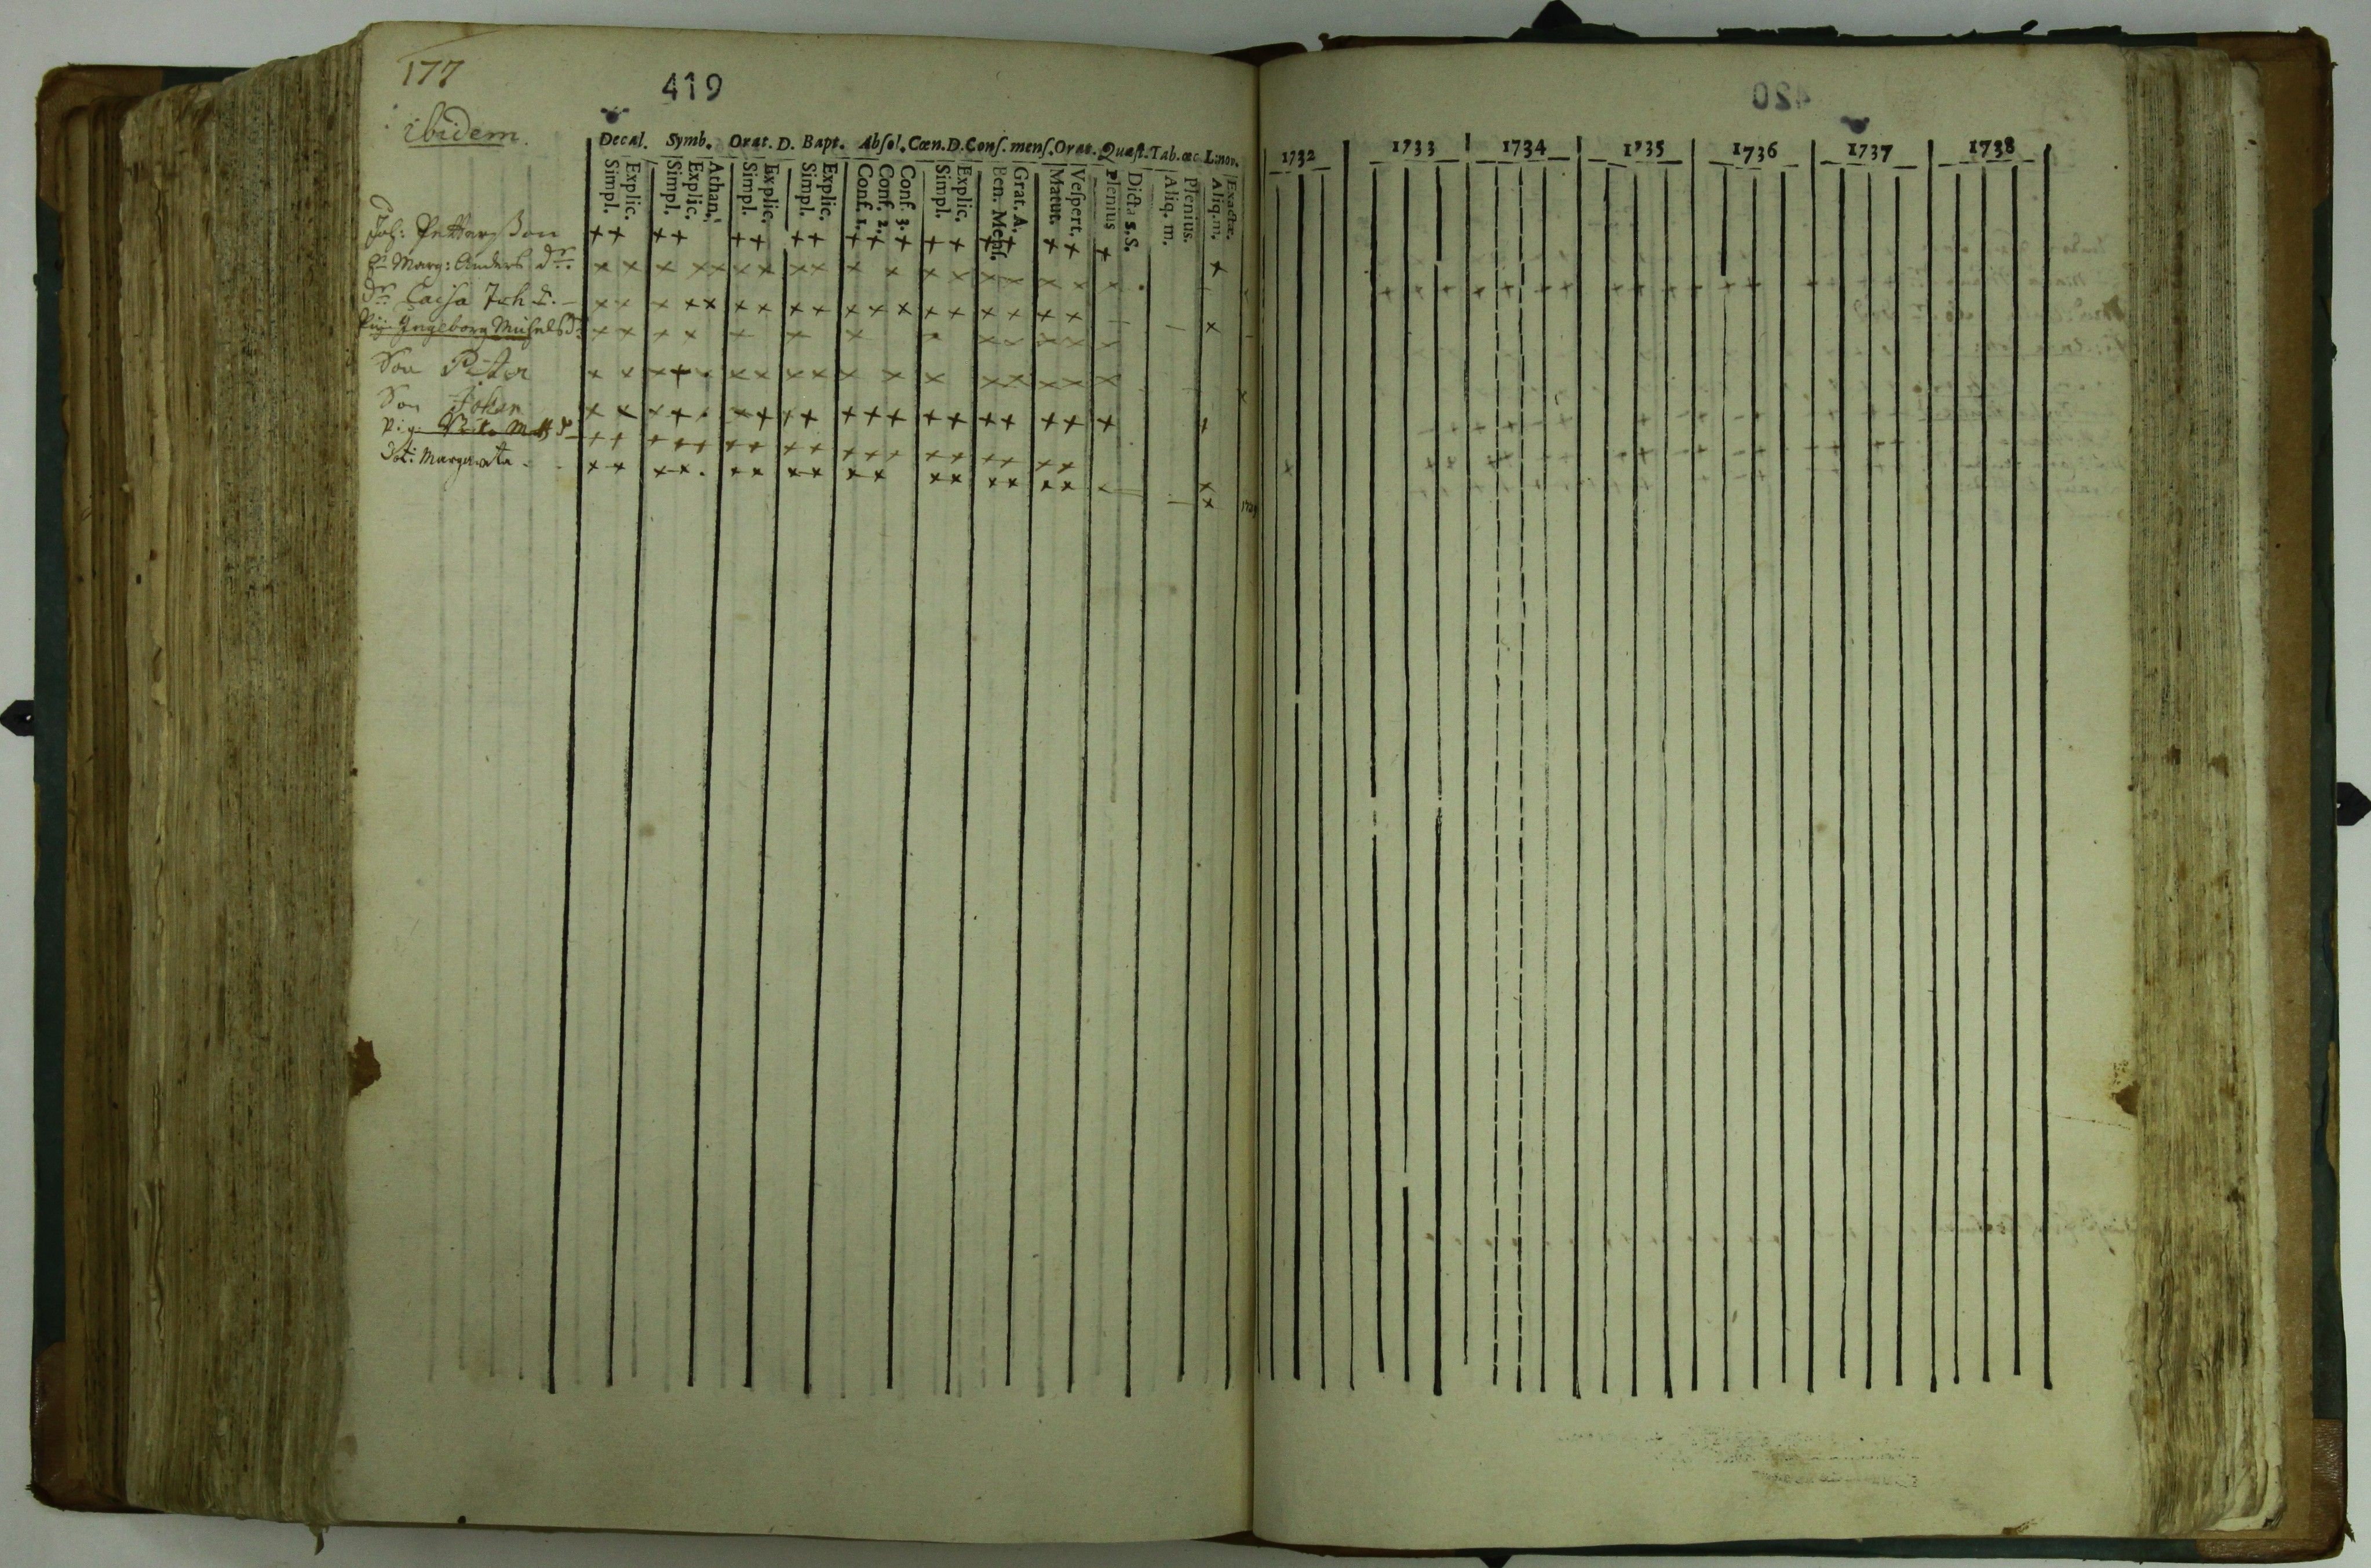 177
419
ibidem.
Decal. Symb. Orat. D. Bapt. Abſol. Cœn. D. Conſ. menſ. Orat. Quæſt. Tab. œc L. nov.
Simpl. Explic. Simpl. Explic. Athan. Simpl. Explic. Simpl. Explic. Conf. 1. Conf. 2. Conf. 3. Simpl. Explic. Ben. Menſ. Grat. A. Matut. Veſpert. Plenius Dicta s. S. Aliq. m. Plenius. Aliq. m. Exactæ.
Joh: Pettersson
Marg: Anders dr.
Caisa Joh d.
Pig. Ingeborg Michelsd:
Son Peter
Son Johan
Pig. Matts d
Dot: Margareta
420
1732 1733 1734 1735 1736 1737 1738